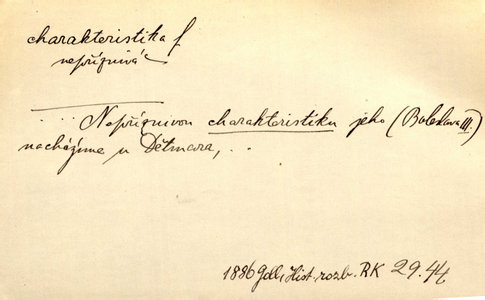 charakteristika f
nepříznivá
.... Nepříznivou charakteristiku jeho (Boleslava III.)
nacházíme u Dětmara, ..
1886 Goll, Hist. rozb. RK 29.44